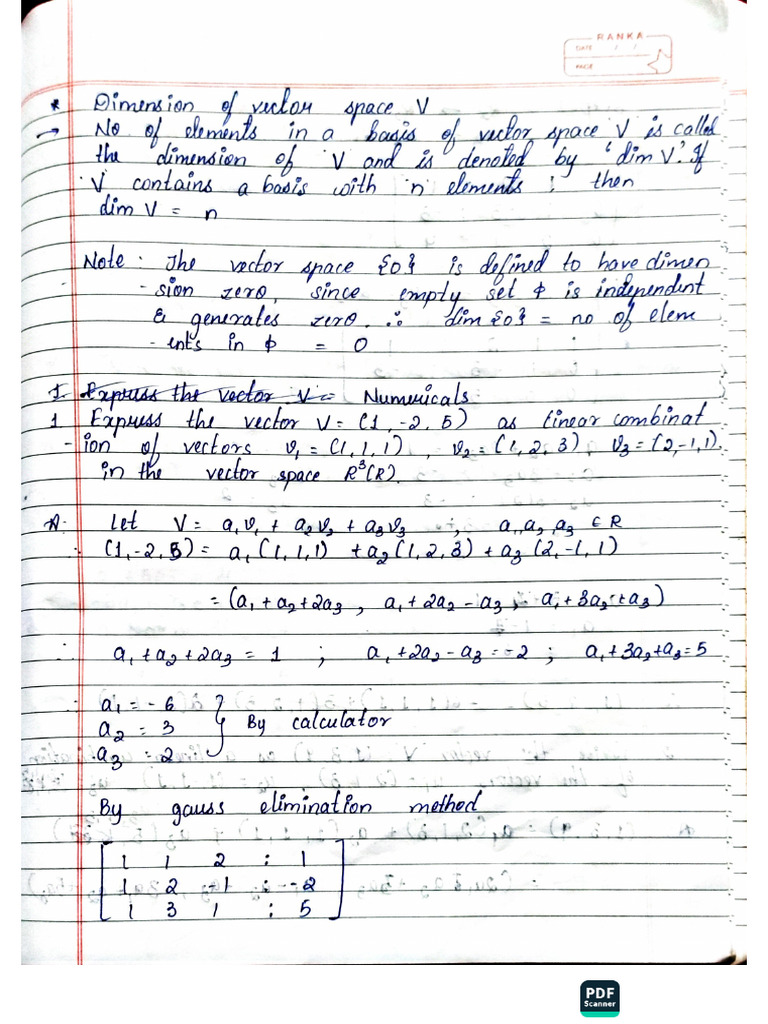 RANKA
DATE / /
PAGE
* Dimension of vector space V
→ No of elements in a basis of vector space V is called
the dimension of V and is denoted by 'dim V'. If
V contains a basis with 'n' elements ; then
dim V = n
Note : The vector space {0} is defined to have dimen
- sion zero, since empty set ϕ is independent
& generates zero. ∴ dim {0} = no of elem
- ents in ϕ = 0
I. Express the vector V = Numericals
1 Express the vector V = (1, -2, 5) as linear combinat
- ion of vectors v₁ = (1, 1, 1) , v₂ = (1, 2, 3) , v₃ = (2, -1, 1).
in the vector space R³(R).
A. Let V = a₁v₁ + a₂v₂ + a₃v₃ ; a₁, a₂, a₃ ∈ R
∴ (1, -2, 5) = a₁(1, 1, 1) + a₂(1, 2, 3) + a₃(2, -1, 1)
= (a₁ + a₂ + 2a₃ , a₁ + 2a₂ - a₃ , a₁ + 3a₂ + a₃)
∴ a₁ + a₂ + 2a₃ = 1 ; a₁ + 2a₂ - a₃ = -2 ; a₁ + 3a₂ + a₃ = 5
∴ a₁ = - 6
a₂ = 3 } By calculator
a₃ = 2
By gauss elimination method
1 1 2 : 1
1 2 -1 : -2
1 3 1 : 5
PDF
Scanner